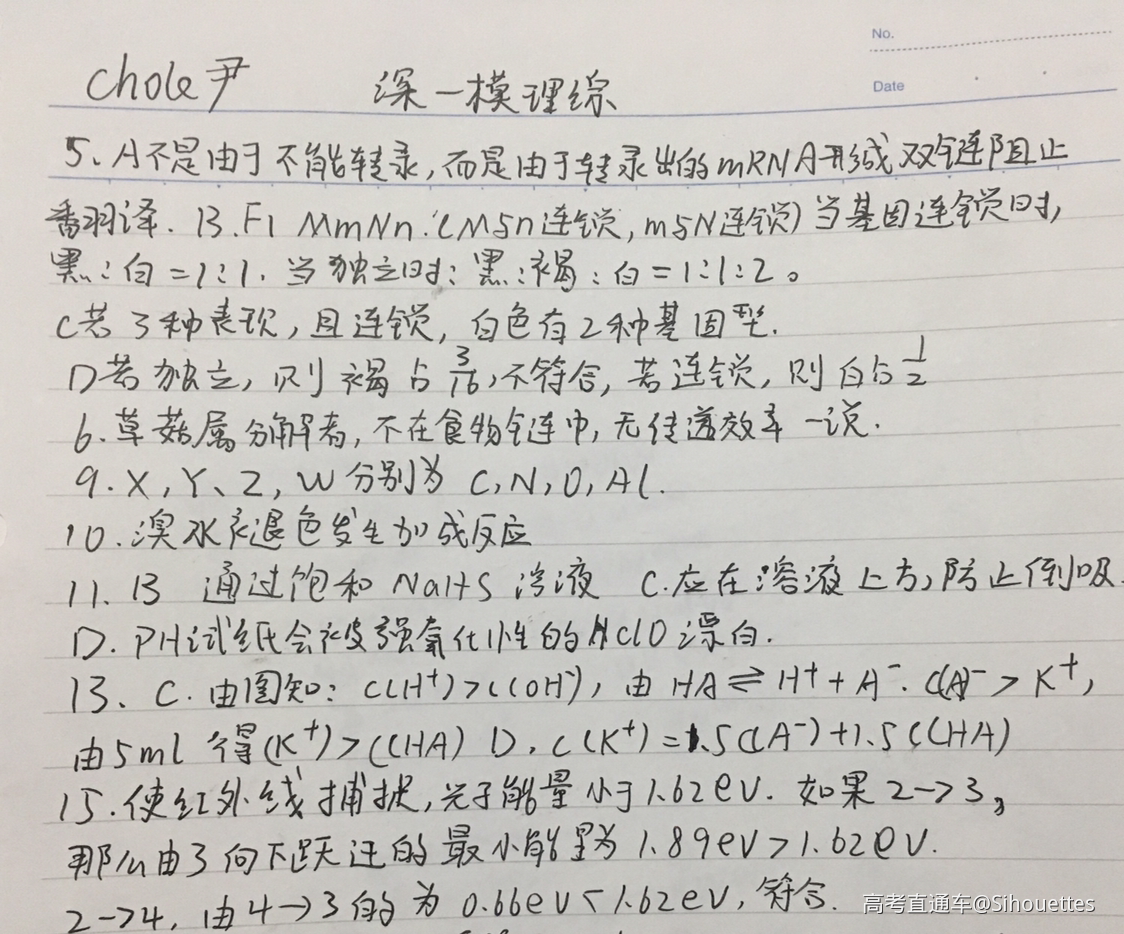 No.
Date
Chole尹 深一模理综
5、A不是由于不能转录,而是由于转录出的mRNA形成双链阻止
翻译. B.F1 MmNn:(M与n连锁,m与N连锁)当基因连锁时,
黑:白=1:1. 当独立时:黑:褐:白=1:1:2。
C若3种表现,且连锁,白色有2种基因型.
D若独立,则褐占3/16,不符合,若连锁,则白占1/2
6.草菇属分解者,不在食物链中,无传递效率一说.
9.X,Y、Z,W分别为 C,N,O,Al.
10.溴水褪色发生加成反应
11.B 通过饱和NaHS溶液 C.应在溶液上方,防止倒吸.
D.PH试纸会被强氧化性的HClO漂白.
13、C.由图知:C(H⁺)>C(OH⁻),由HA⇌H⁺+A⁻.C(A)⁻>K⁺,
由5ml 得(K⁺)>C(HA) D.C(K⁺)=1.5C(A⁻)+1.5C(HA)
15.使红外线捕捉,光子能量小于1.62eV.如果2→3,
那么由3向下跃迁的最小能量为1.89eV>1.62eV.
2→4,由4→3的为0.66eV<1.62eV,符合.
高考直通车@Sihouettes